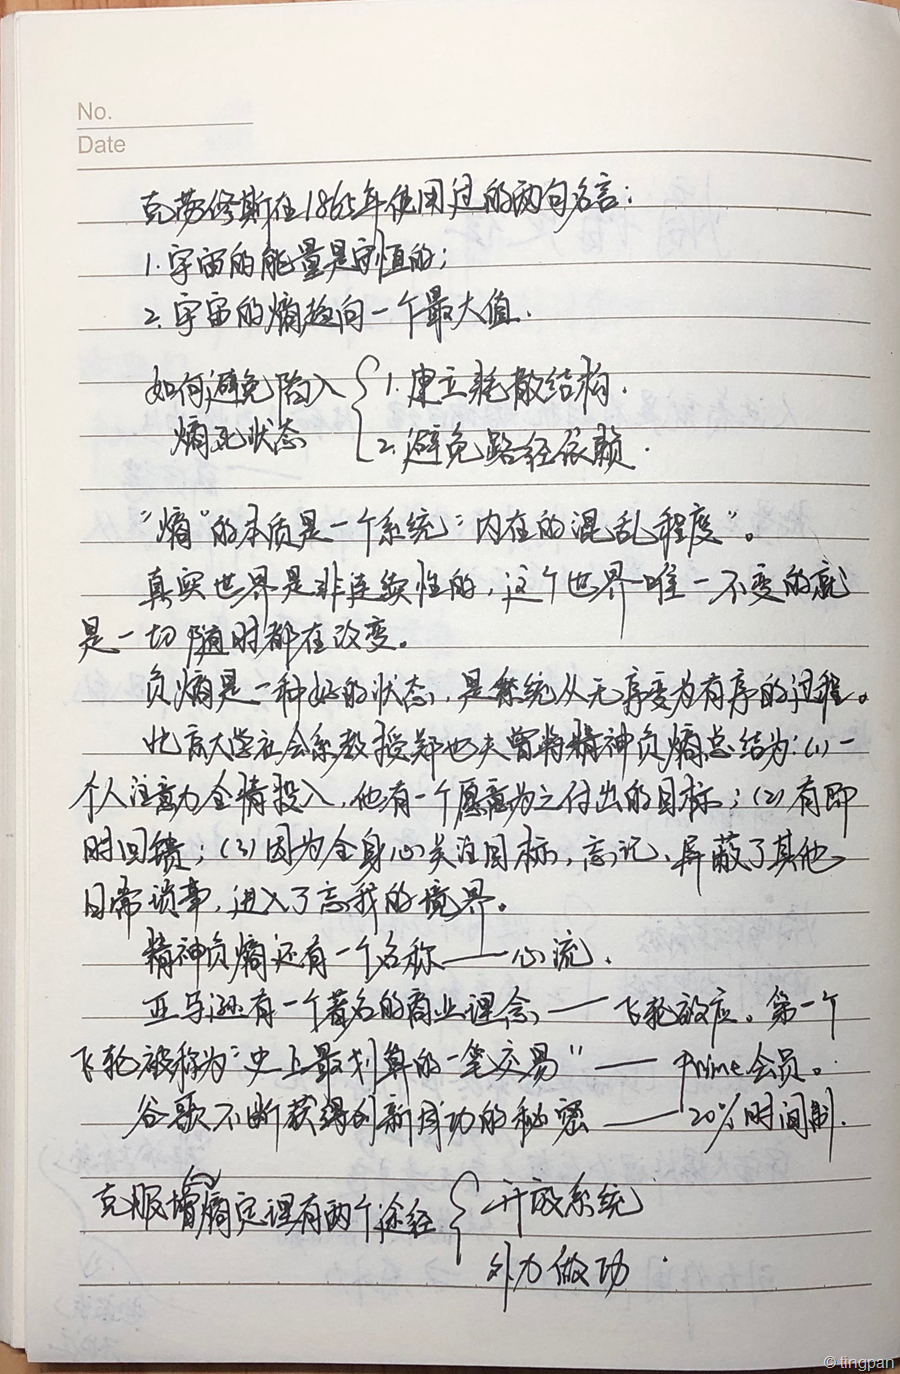 No.
Date
克劳修斯在1865年使用过的两句名言：
1. 宇宙的能量是守恒的；
2. 宇宙的熵趋向一个最大值.
如何避免陷入 { 1. 建立耗散结构.
熵死状态 2. 避免路径依赖.
“熵”的本质是一个系统“内在的混乱程度”。
真实世界是非连续性的，这个世界唯一不变的就
是一切随时都在改变。
负熵是一种好的状态，是系统从无序变为有序的过程。
北京大学社会系教授郑也夫曾将精神负熵总结为：(1) 一
个人注意力全情投入，他有一个愿意为之付出的目标；(2) 有即
时回馈；(3) 因为全身心关注目标，忘记、屏蔽了其他
日常琐事，进入了忘我的境界。
精神负熵还有一个名称——心流.
亚马逊有一个著名的商业理念——飞轮效应。第一个
飞轮被称为“史上最划算的一笔交易”——Prime会员。
谷歌不断获得创新成功的秘密——20%时间制.
克服熵增定理有两个途径 { 开放系统
外力做功.
© tingpan